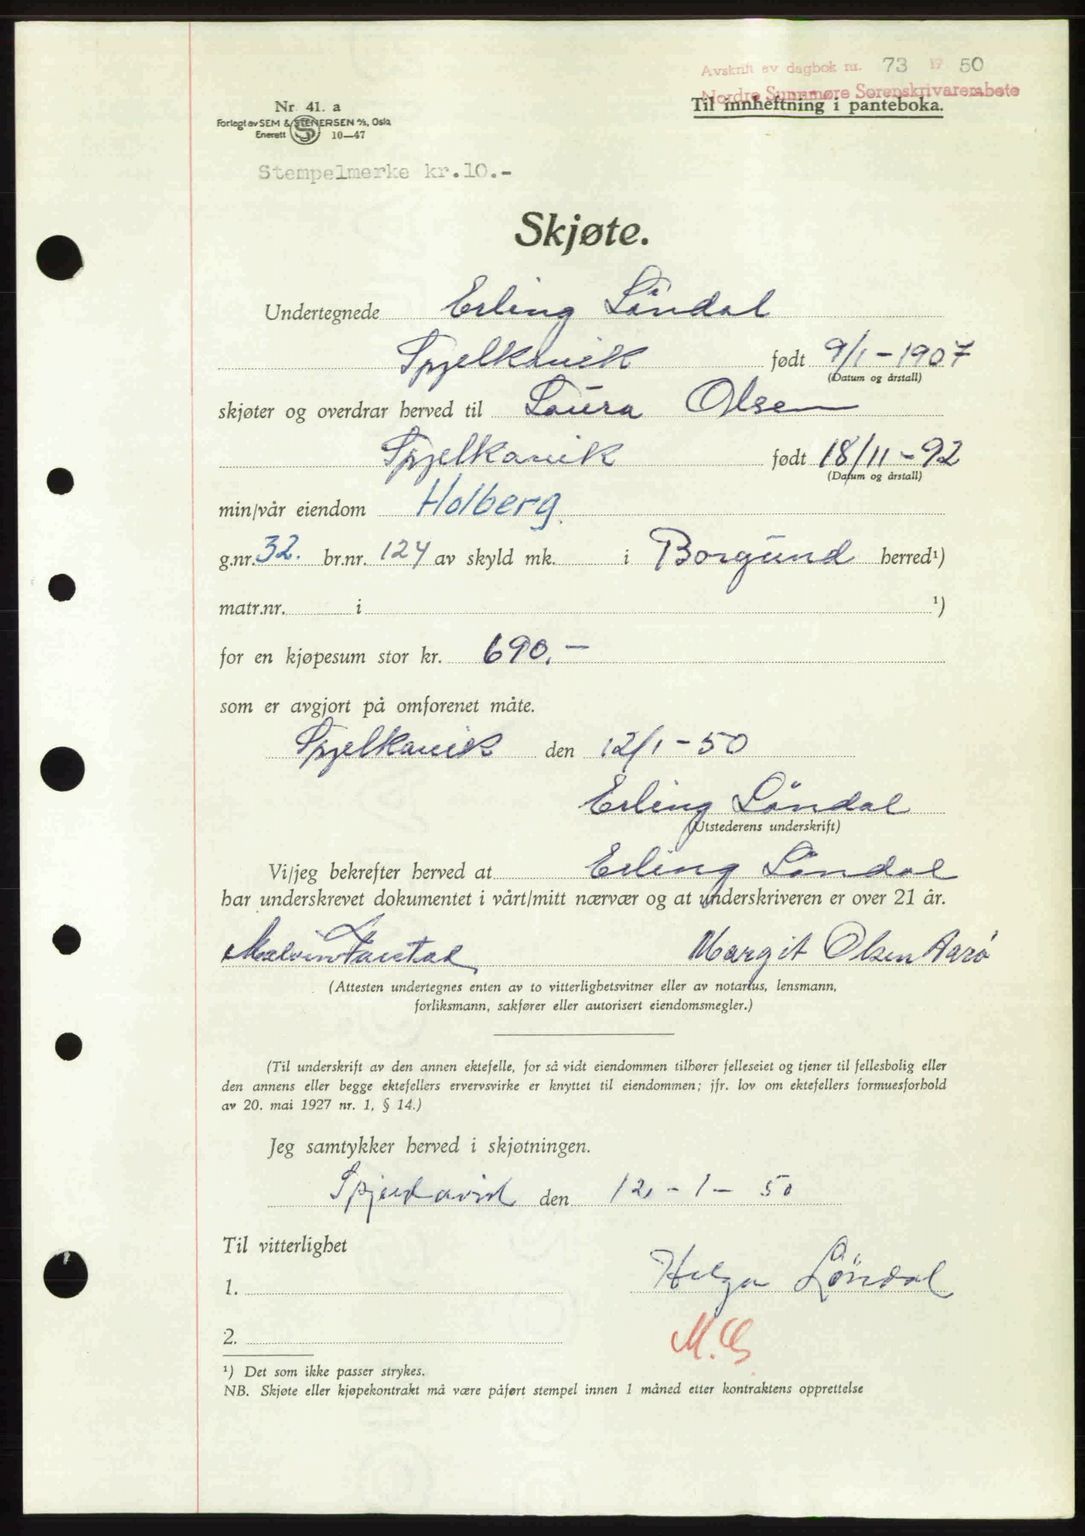 Avskrift av dagbok nr. 73 19 50
Nordre Sunnmøre Sorenskrivarembete
Til innheftning i panteboka.
Nr. 41. a
Forlagt av SEM & STENERSEN A/S, Oslo
Enerett S 10—47
Stempelmerke kr.10.-
Skjøte.
Undertegnede Erling Löndal
Spjelkavik født 9/1-1907
(Datum og årstall)
skjøter og overdrar herved til Laura Olsen
Spjelkavik født 18/11-92
(Datum og årstall)
min/vår eiendom Holberg
g.nr. 32. br.nr. 124 av skyld mk. i Borgund herred¹)
matr.nr. i ¹)
for en kjøpesum stor kr. 690.-
som er avgjort på omforenet måte.
Spjelkavik den 12/1-50
Erling Löndal
(Utstederens underskrift)
Vi/jeg bekrefter herved at Erling Löndal
har underskrevet dokumentet i vårt/mitt nærvær og at underskriveren er over 21 år.
Margit Olsen Aarö
(Attesten undertegnes enten av to vitterlighetsvitner eller av notarius, lensmann,
forliksmann, sakfører eller autorisert eiendomsmegler.)
(Til underskrift av den annen ektefelle, for så vidt eiendommen tilhører felleseiet og tjener til fellesbolig eller
den annens eller begge ektefellers ervervsvirke er knyttet til eiendommen; jfr. lov om ektefellers formuesforhold
av 20. mai 1927 nr. 1, § 14.)
Jeg samtykker herved i skjøtningen.
Spjelkavik den 12.-1-50
Til vitterlighet
Helga Löndal
1.
M.G
2.
¹) Det som ikke passer strykes.
NB. Skjøte eller kjøpekontrakt må være påført stempel innen 1 måned etter kontraktens opprettelse